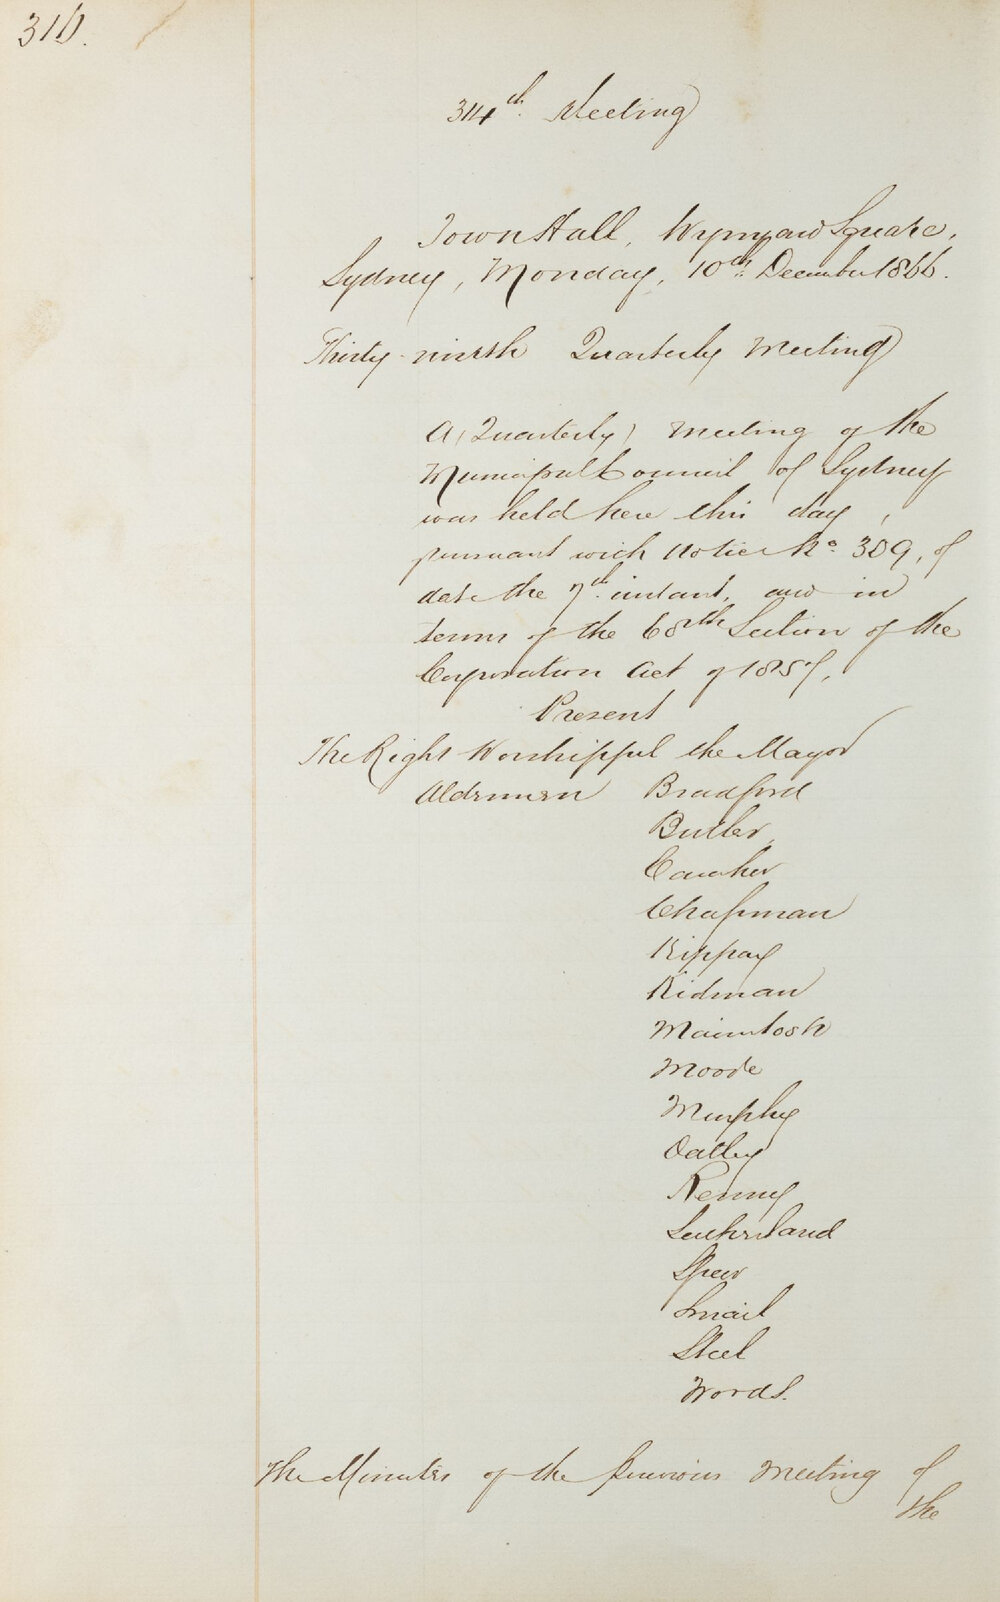 316.
314th Meeting
Town Hall, Wynyard Square,
Sydney, Monday, 10th December 1866.
Thirty-ninth Quarterly Meeting
A (Quarterly) Meeting of the
Municipal Council of Sydney
was held here this day,
pursuant with Notice No. 389, of
date the 7th instant, and in
terms of the 68th Section of the
Corporation Act of 1857,
Present
The Right Worshipful the Mayor
Aldermen Bradford
Butler,
Caraher
Chapman
Kippax
Kidman
Macintosh
Moore
Murphy
Oatley
Renny
Sutherland
Speer
Smail
Steel
Woods.
The Minutes of the previous Meeting of
the